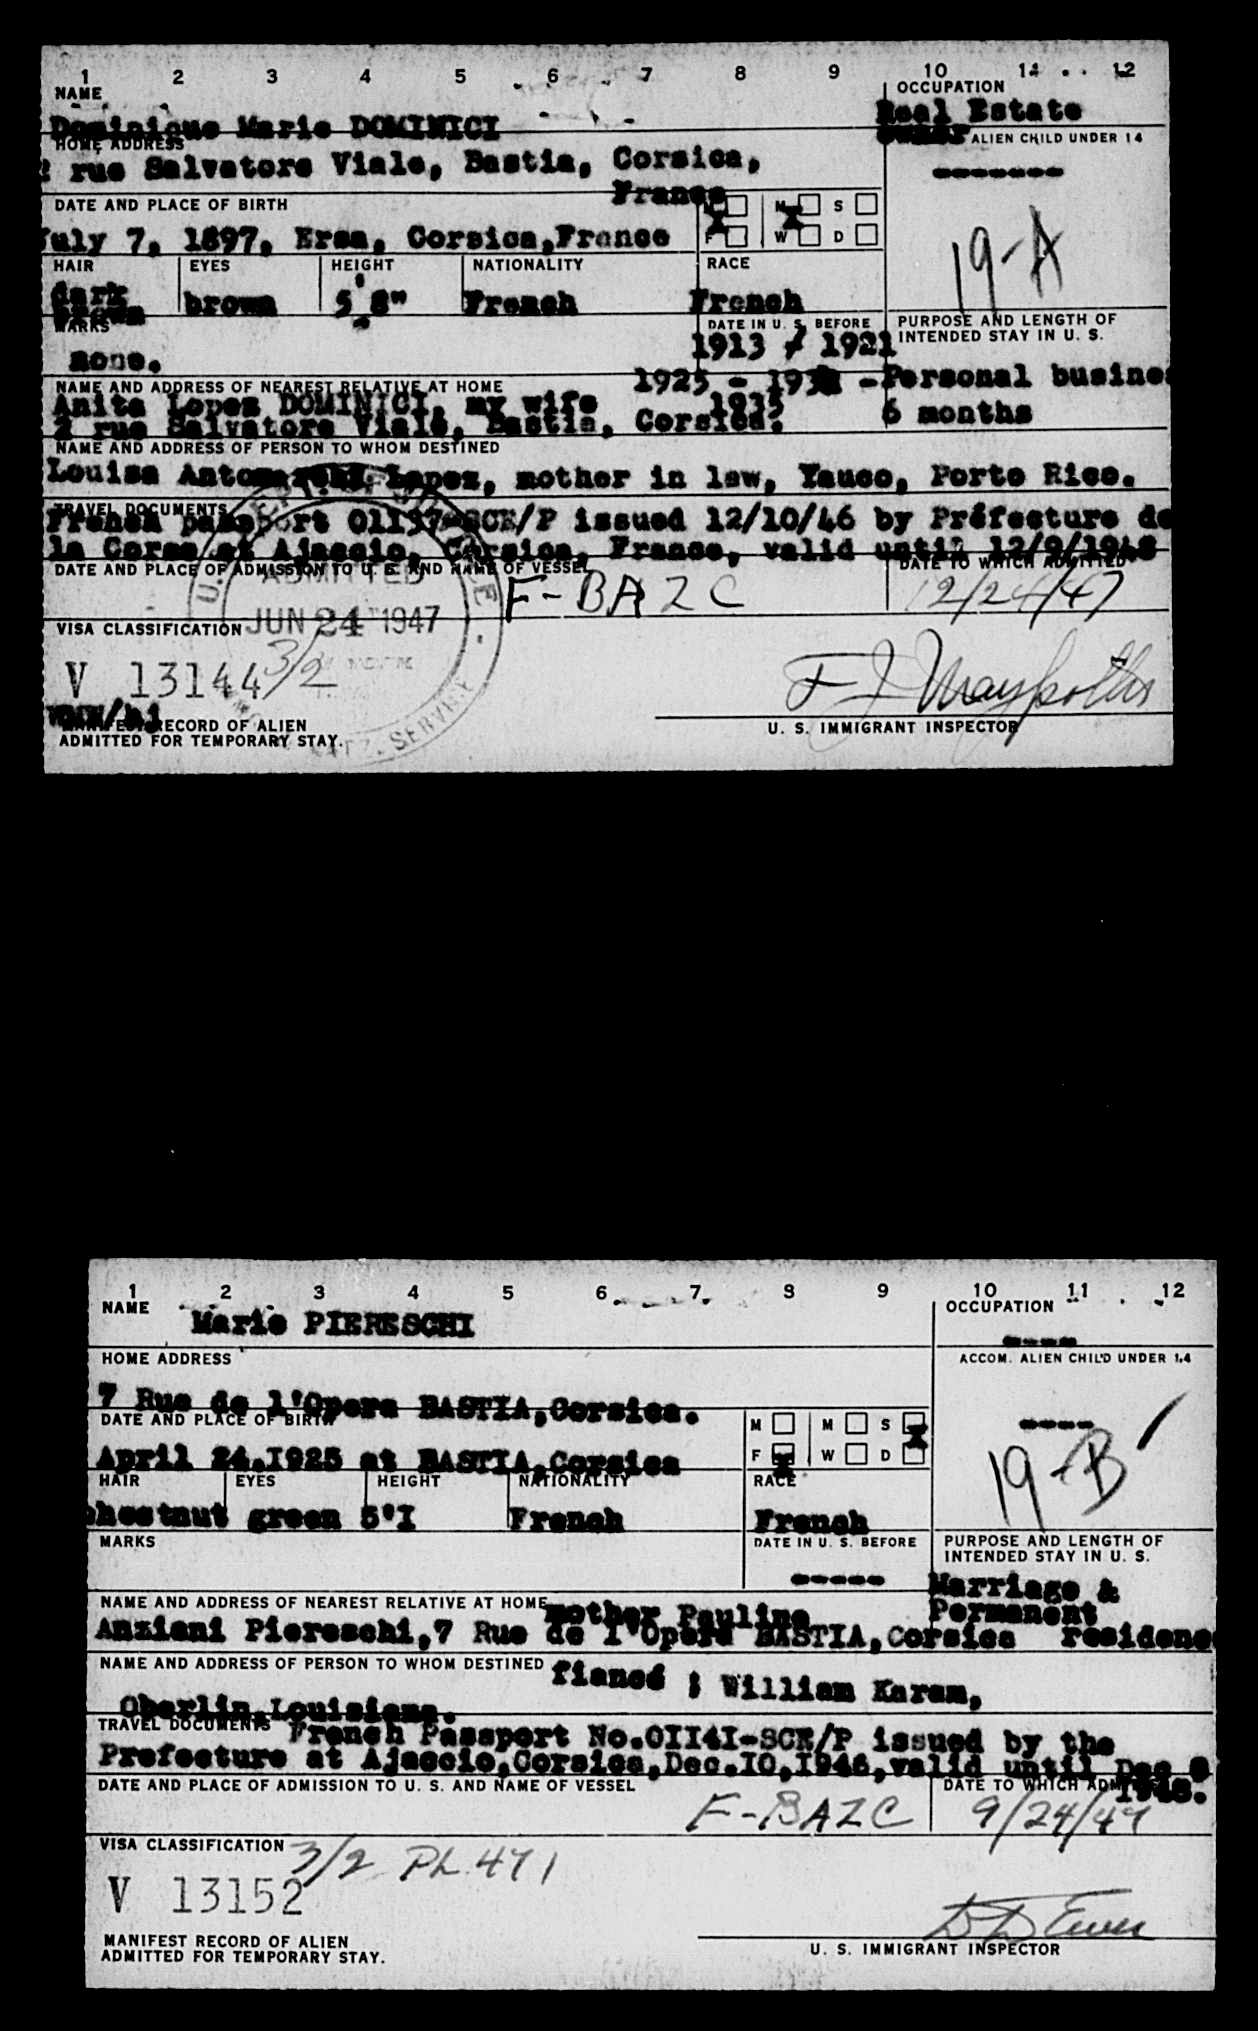 1 2 3 4 5 6 7 8 9 10 11 12
NAME OCCUPATION
Dominique Marie DOMINICI Real Estate
Owner
HOME ADDRESS ALIEN CHILD UNDER 14
2 rue Salvatore Viale, Bastia, Corsica, -------
France
DATE AND PLACE OF BIRTH M M S
F W D
July 7, 1897, Ersa, Corsica,France
19-A
HAIR EYES HEIGHT NATIONALITY RACE
dark brown 5'8" French French
brown
MARKS DATE IN U. S. BEFORE PURPOSE AND LENGTH OF
INTENDED STAY IN U. S.
none. 1913 / 1921
1925 - - Personal busines
1935 6 months
NAME AND ADDRESS OF NEAREST RELATIVE AT HOME
Anita Lopez DOMINICI, my wife
2 rue Salvatore Viale, Bastia, Corsica.
NAME AND ADDRESS OF PERSON TO WHOM DESTINED
Louisa Lopez, mother in law, Yauco, Porto Rico.
TRAVEL DOCUMENTS
French passport 01137-SCE/P issued 12/10/46 by Préfecture de
la Corse at Ajaccio, Corsica, France, valid until 12/9/1948
DATE AND PLACE OF ADMISSION TO U. S. AND NAME OF VESSEL DATE TO WHICH ADMITTED
ADMITTED F-BAZC 12/24/47
JUN 24 1947
VISA CLASSIFICATION
3/2
V 13144
MANIFEST RECORD OF ALIEN
ADMITTED FOR TEMPORARY STAY.
U. S. IMMIGRANT INSPECTOR
1 2 3 4 5 6 7 8 9 10 11 12
NAME OCCUPATION
Marie PIERESCHI ----
HOME ADDRESS ACCOM. ALIEN CHILD UNDER 14
7 Rue de l'Opera BASTIA,Corsica. ----
DATE AND PLACE OF BIRTH M M S
F W D
April 24,I925 at BASTIA,Corsica
19-B
HAIR EYES HEIGHT NATIONALITY RACE
chestnut green 5'I French French
MARKS DATE IN U. S. BEFORE PURPOSE AND LENGTH OF
INTENDED STAY IN U. S.
----- Marriage &
Permanent
residence
NAME AND ADDRESS OF NEAREST RELATIVE AT HOME mother Pauline
Anziani Piereschi,7 Rue de l'Opera BASTIA,Corsica
NAME AND ADDRESS OF PERSON TO WHOM DESTINED fiancé : William Karam,
Oberlin,Louisiana.
TRAVEL DOCUMENTS French Passport No.0II4I-SCE/P issued by the
Prefecture at Ajaccio,Corsica,Dec.IO,I946,valid until Dec 9
1948.
DATE AND PLACE OF ADMISSION TO U. S. AND NAME OF VESSEL DATE TO WHICH
F-BAZC 9/24/47
VISA CLASSIFICATION 3/2 PL 471
V 13152
MANIFEST RECORD OF ALIEN
ADMITTED FOR TEMPORARY STAY.
U. S. IMMIGRANT INSPECTOR